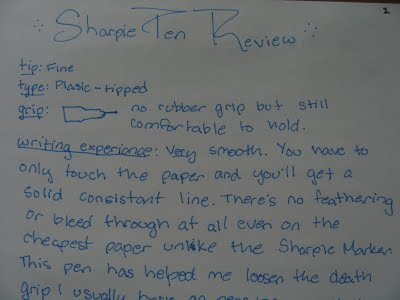 Sharpie Pen Review
2
tip: Fine
type: Plasic-tipped
grip: no rubber grip but still
comfortable to hold.
writing experience: Very smooth. You have to
only touch the paper and you'll get a
solid consistant line. There's no feathering
or bleed through at all even on the
cheapest paper unlike the Sharpie Marker.
This pen has helped me loosen the death
grip I usually have on